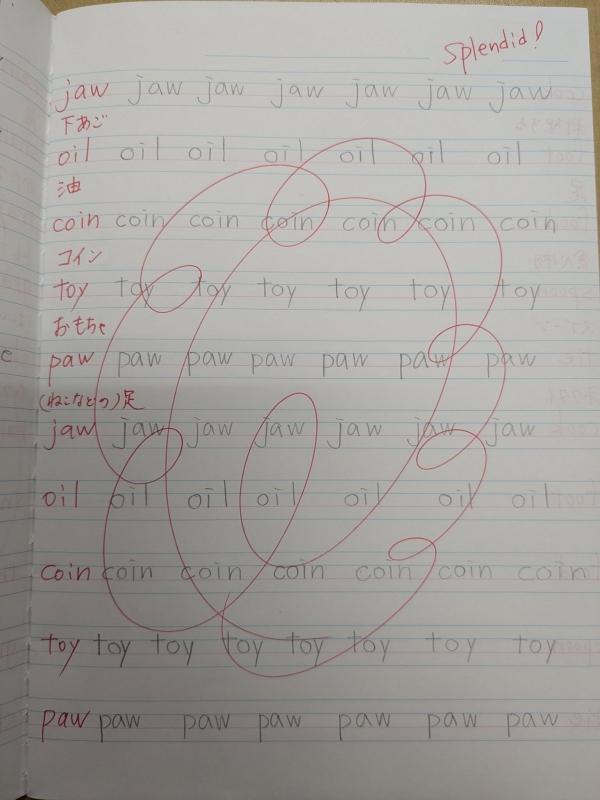 Splendid!
jaw jaw jaw jaw jaw jaw jaw
下あご
oil oil oil oil oil oil oil
油
coin coin coin coin coin coin coin
コイン
toy toy toy toy toy toy toy
おもちゃ
paw paw paw paw paw paw paw
(ねこなどの)足
jaw jaw jaw jaw jaw jaw jaw
oil oil oil oil oil oil oil
coin coin coin coin coin coin coin
toy toy toy toy toy toy toy toy
paw paw paw paw paw paw paw